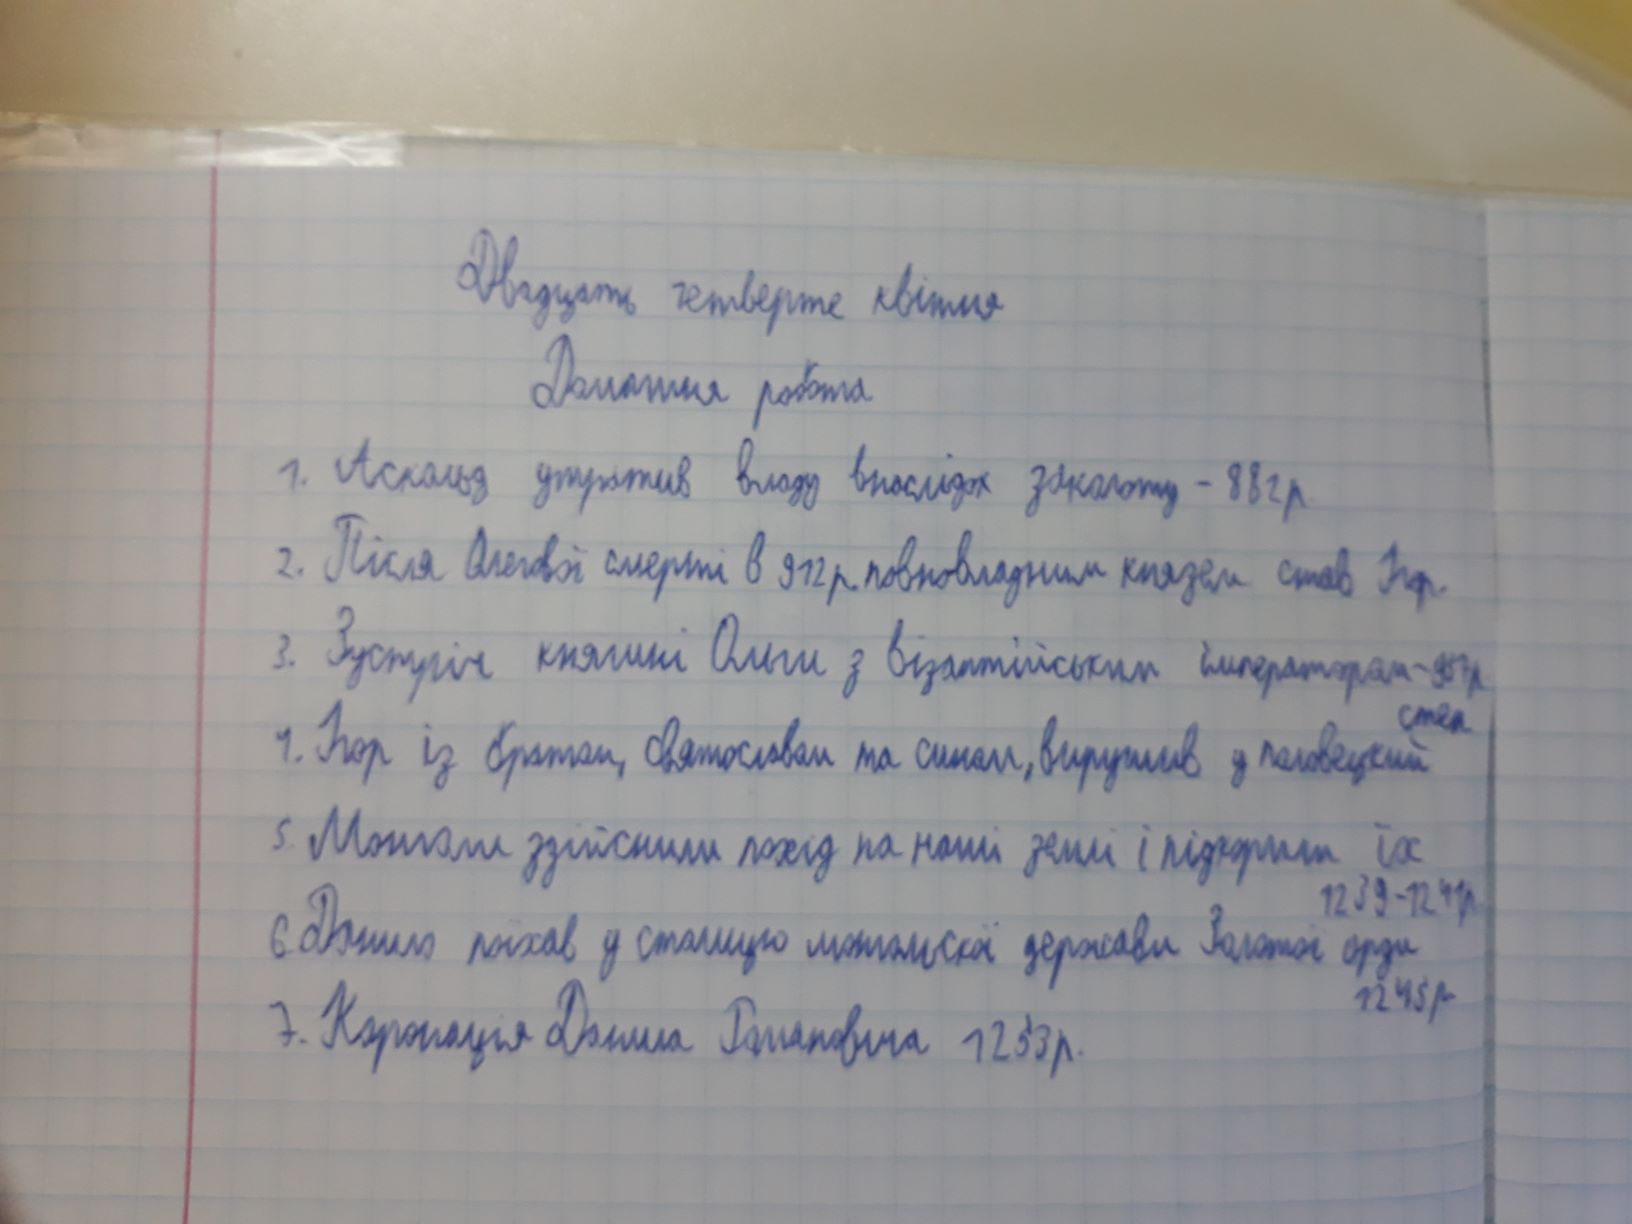 Двадцять четверте квітня
Домашня робота
1. Аскольд утратив владу внаслідок заколоту - 882р.
2. Після Олегової смерті в 912р. повновладним князем став Ігор.
3. Зустріч княгині Ольги з візантійським імператором - 957р
4. Ігор із братом, Святославом та сином, вирушив у половецкий
степ
5. Монголи здійснили похід на наші землі і підкорили їх
1239-1241р.
6. Данило поїхав у столицю монгольскої держави Золотої орди
1245р
7. Коронація Данила Романовича 1253р.